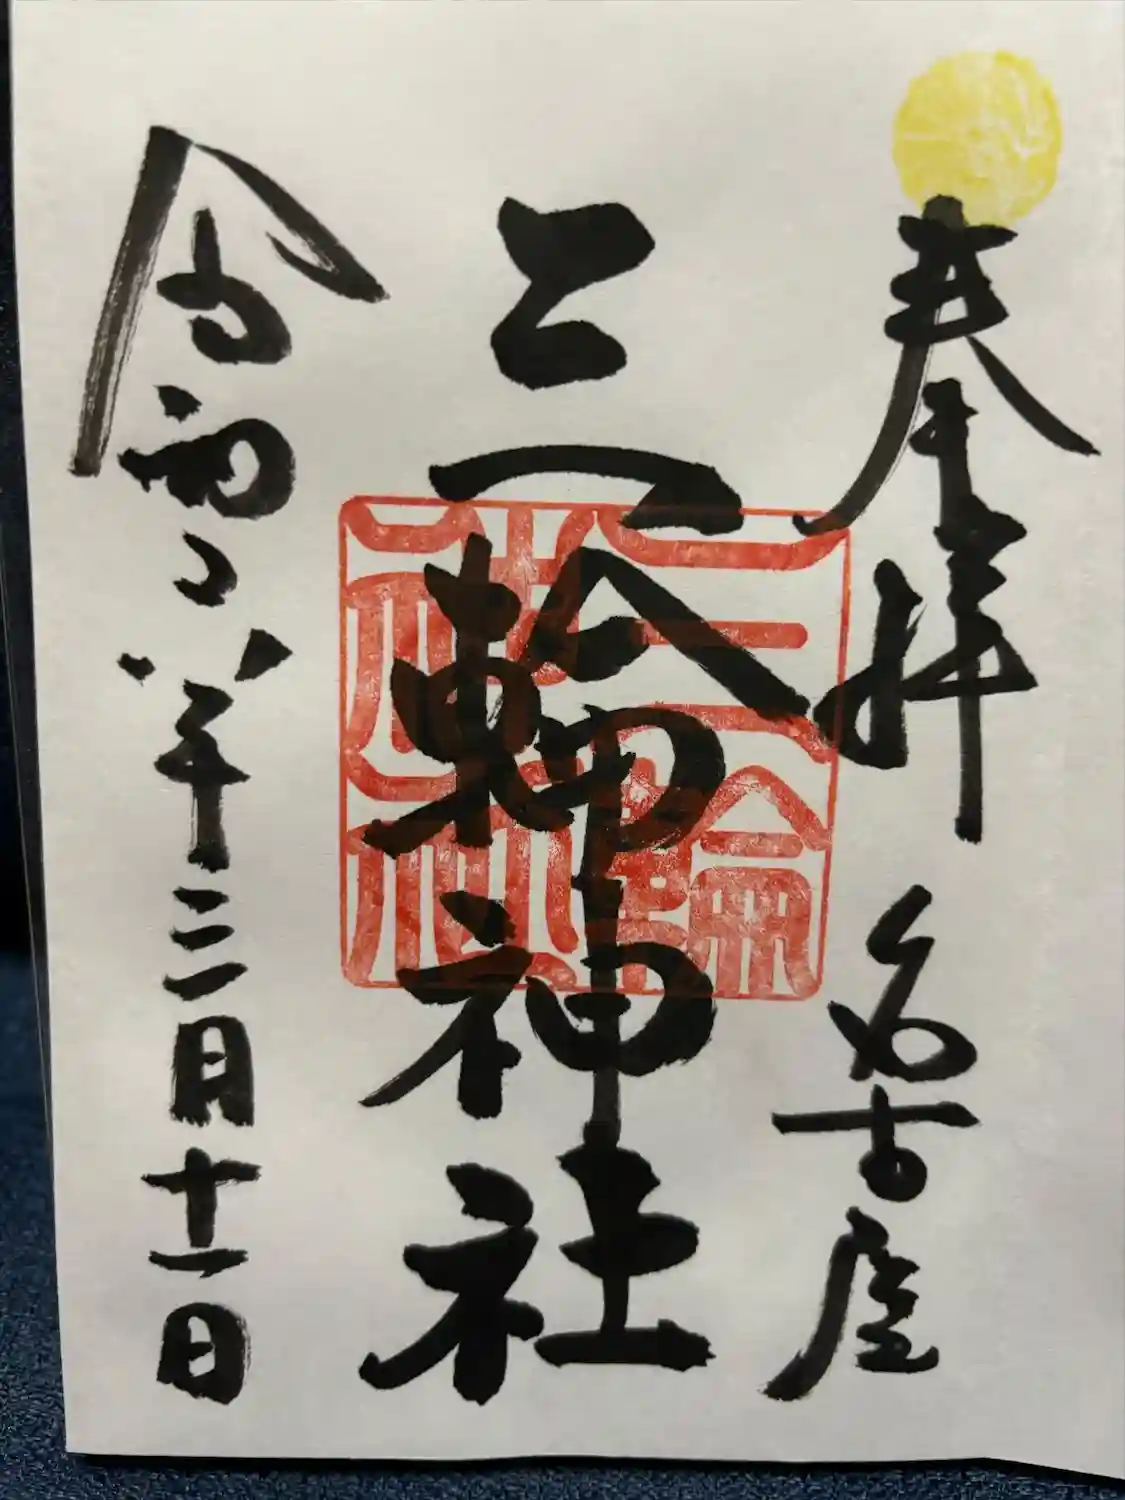 奉拝 名古屋
三輪神社
令和六年三月十一日
三輪
神社